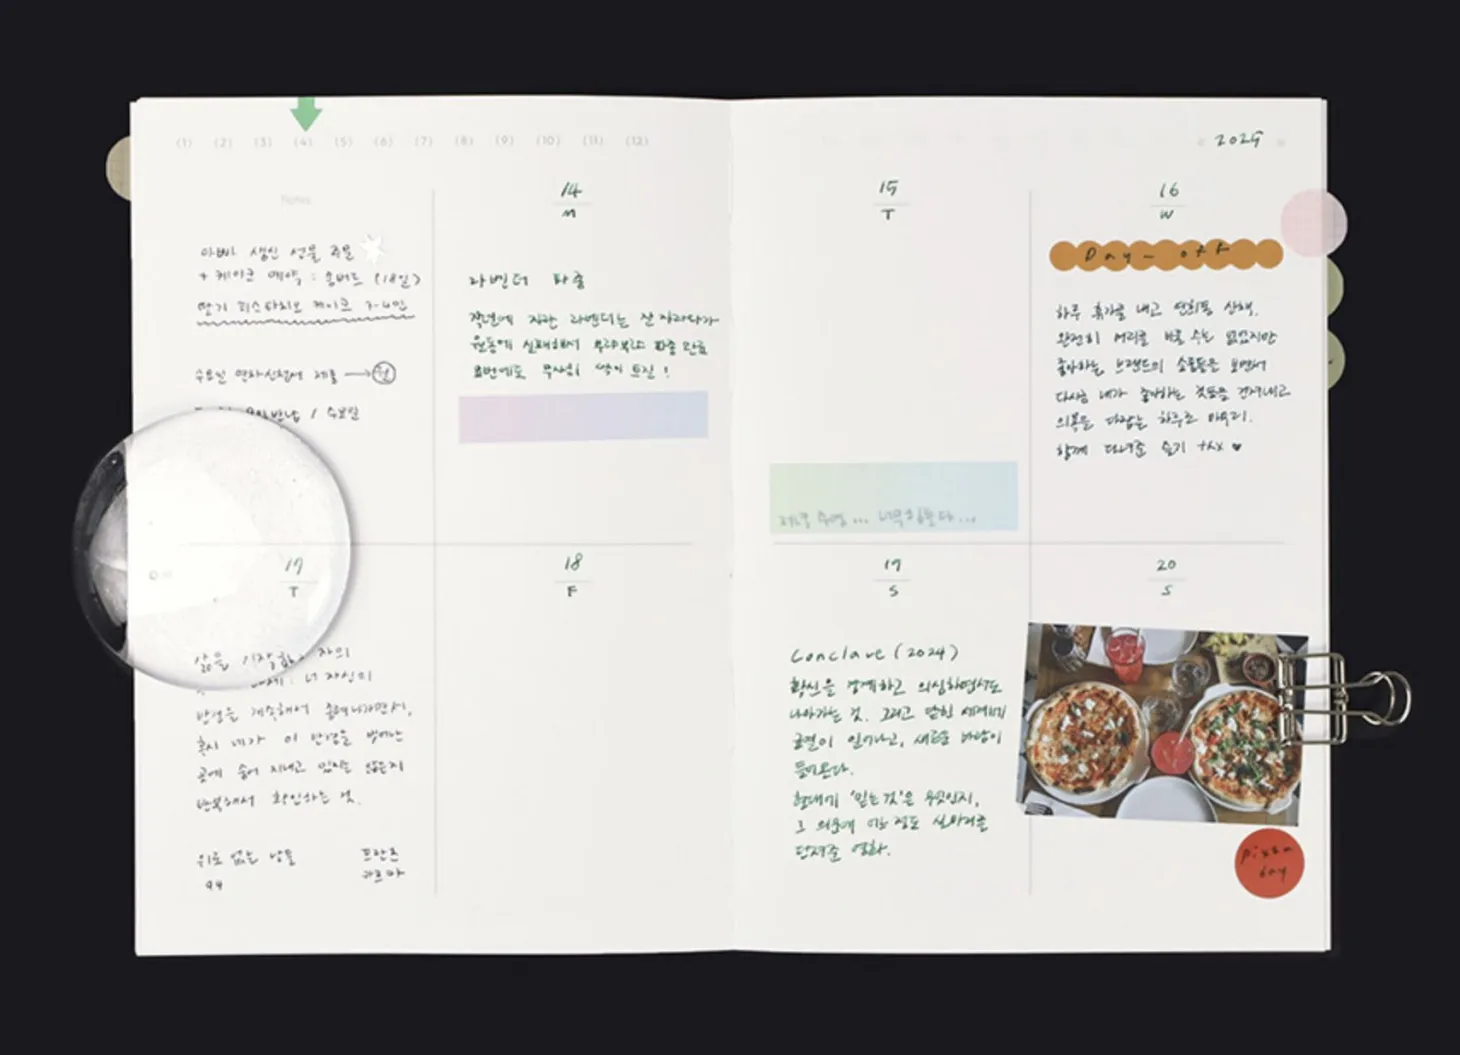 (1) (2) (3) (4) (5) (6) (7) (8) (9) (10) (11) (12)
2025
Notes
아빠 생신 선물 주문
+ 케이크 예약 : 솜버드 (18일)
딸기 피스타치오 케이크 3-4인
수요일 연차신청서 제출 → 월
반납 / 수요일
14
M
라벤더 파종
작년에 자란 라벤더는 잘 자라다가
월동에 실패해서 부랴부랴 파종 완료
요번에도 무사히 싹이 트길 !
15
T
저녁 수영 ... 너무 힘들다 ...
16
W
Day-off
하루 휴가를 내고 연희동 산책.
완전히 머리를 비울 수는 없었지만
좋아하는 브랜드의 소품들은 보면서
다시금 내가 좋아하는 것들을 건져내고
의욕을 다잡는 하루로 마무리.
함께 다녀준 슬기 thx ♥
17
T
삶을 기작하는 자의
너 자신의
반성을 계속해서 좁혀나가면서,
혹시 네가 이 반경을 벗어난
곳에 숨어 지내고 있지는 않은지
반복해서 확인하는 것.
위로 없는 날들
94
프란츠
카프카
18
F
19
S
Conclave (2024)
확신을 경계하고 의심하면서도
나아가는 것. 그리고 닫힌 세계에
균열이 일어나고, 새로운 바람이
들어온다.
현대에 '믿는 것'은 무엇인지,
그 의문에 어느 정도 실마리를
던져준 영화.
20
S
pizza
day